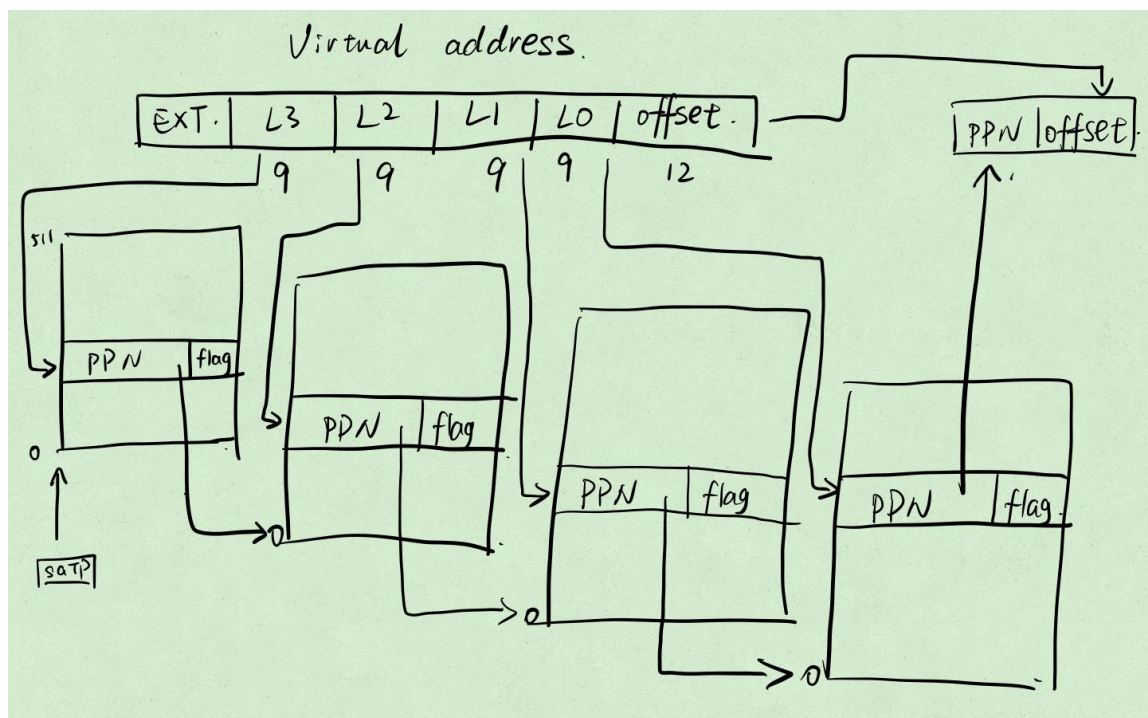 Virtual address.
EXT. L3 L2 L1 L0 offset.
PPN offset
9 9 9 9 12
511
PPN flag
0
satp
PPN flag
0
PPN flag
0
PPN flag
0